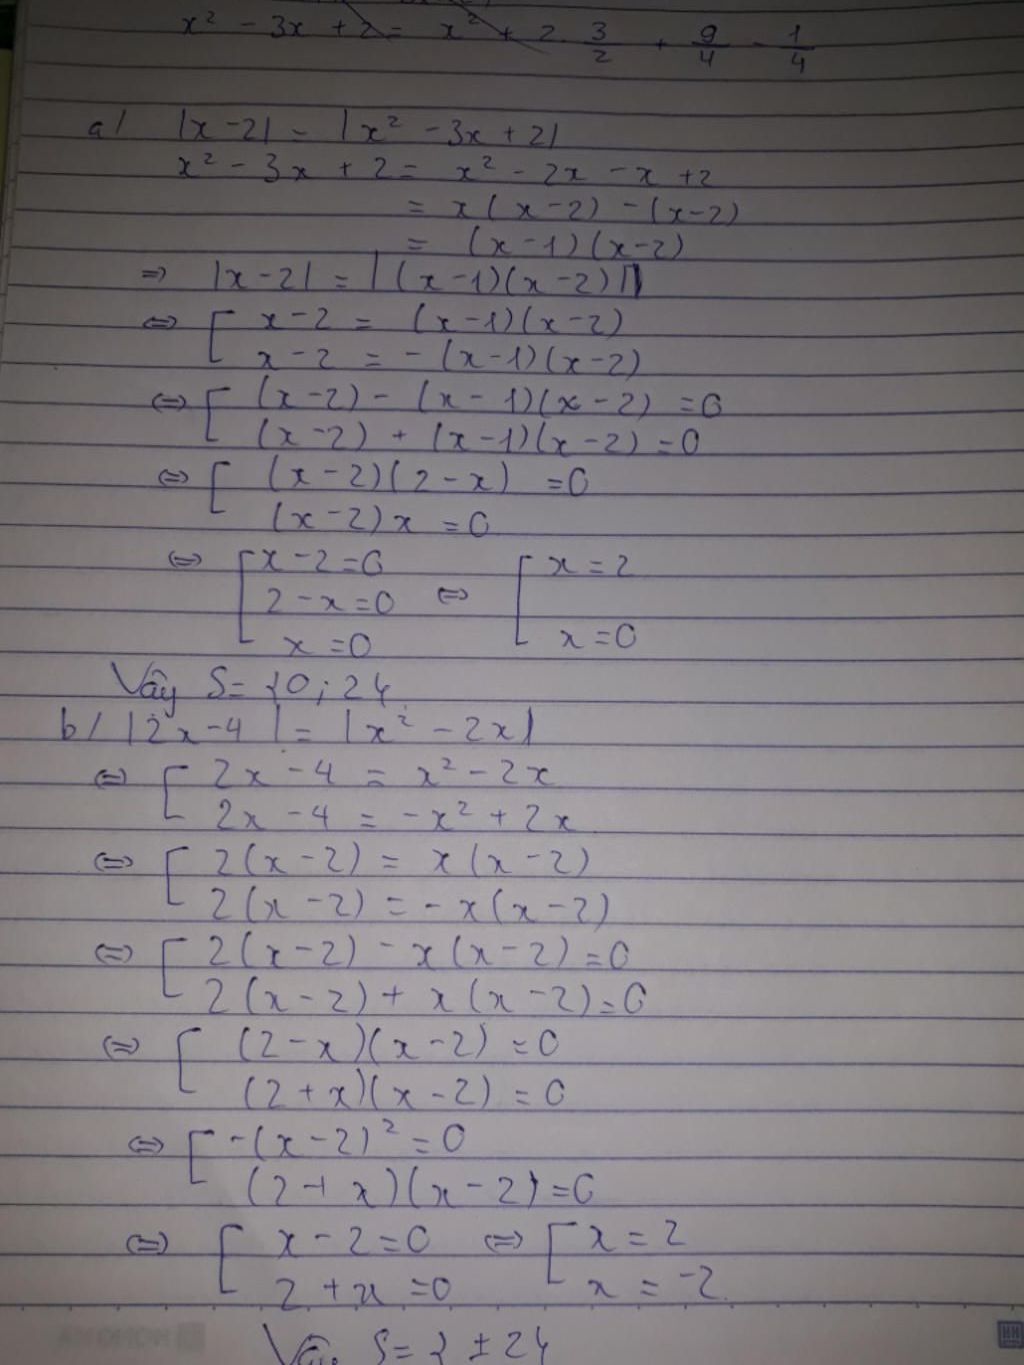 x² - 3x + 2 = x² + 2. 3/2 + 9/4 - 1/4
a/ |x-2| = |x² - 3x + 2|
x² - 3x + 2 = x² - 2x - x + 2
= x(x-2) - (x-2)
= (x-1)(x-2)
=> |x-2| = |(x-1)(x-2)|
<=> [ x-2 = (x-1)(x-2)
x-2 = -(x-1)(x-2)
<=> [ (x-2) - (x-1)(x-2) = 0
(x-2) + (x-1)(x-2) = 0
<=> [ (x-2)(2-x) = 0
(x-2)x = 0
<=> [ x-2=0
2-x=0 <=> [ x=2
x=0 x=0
Vậy S= {0;2}
b/ |2x-4| = |x² - 2x|
<=> [ 2x-4 = x² - 2x
2x-4 = -x² + 2x
<=> [ 2(x-2) = x(x-2)
2(x-2) = -x(x-2)
<=> [ 2(x-2) - x(x-2) = 0
2(x-2) + x(x-2) = 0
<=> [ (2-x)(x-2) = 0
(2+x)(x-2) = 0
<=> [ -(x-2)² = 0
(2+x)(x-2) = 0
<=> [ x-2=0 <=> [ x=2
2+x=0 x=-2
Vậy S= {±2}